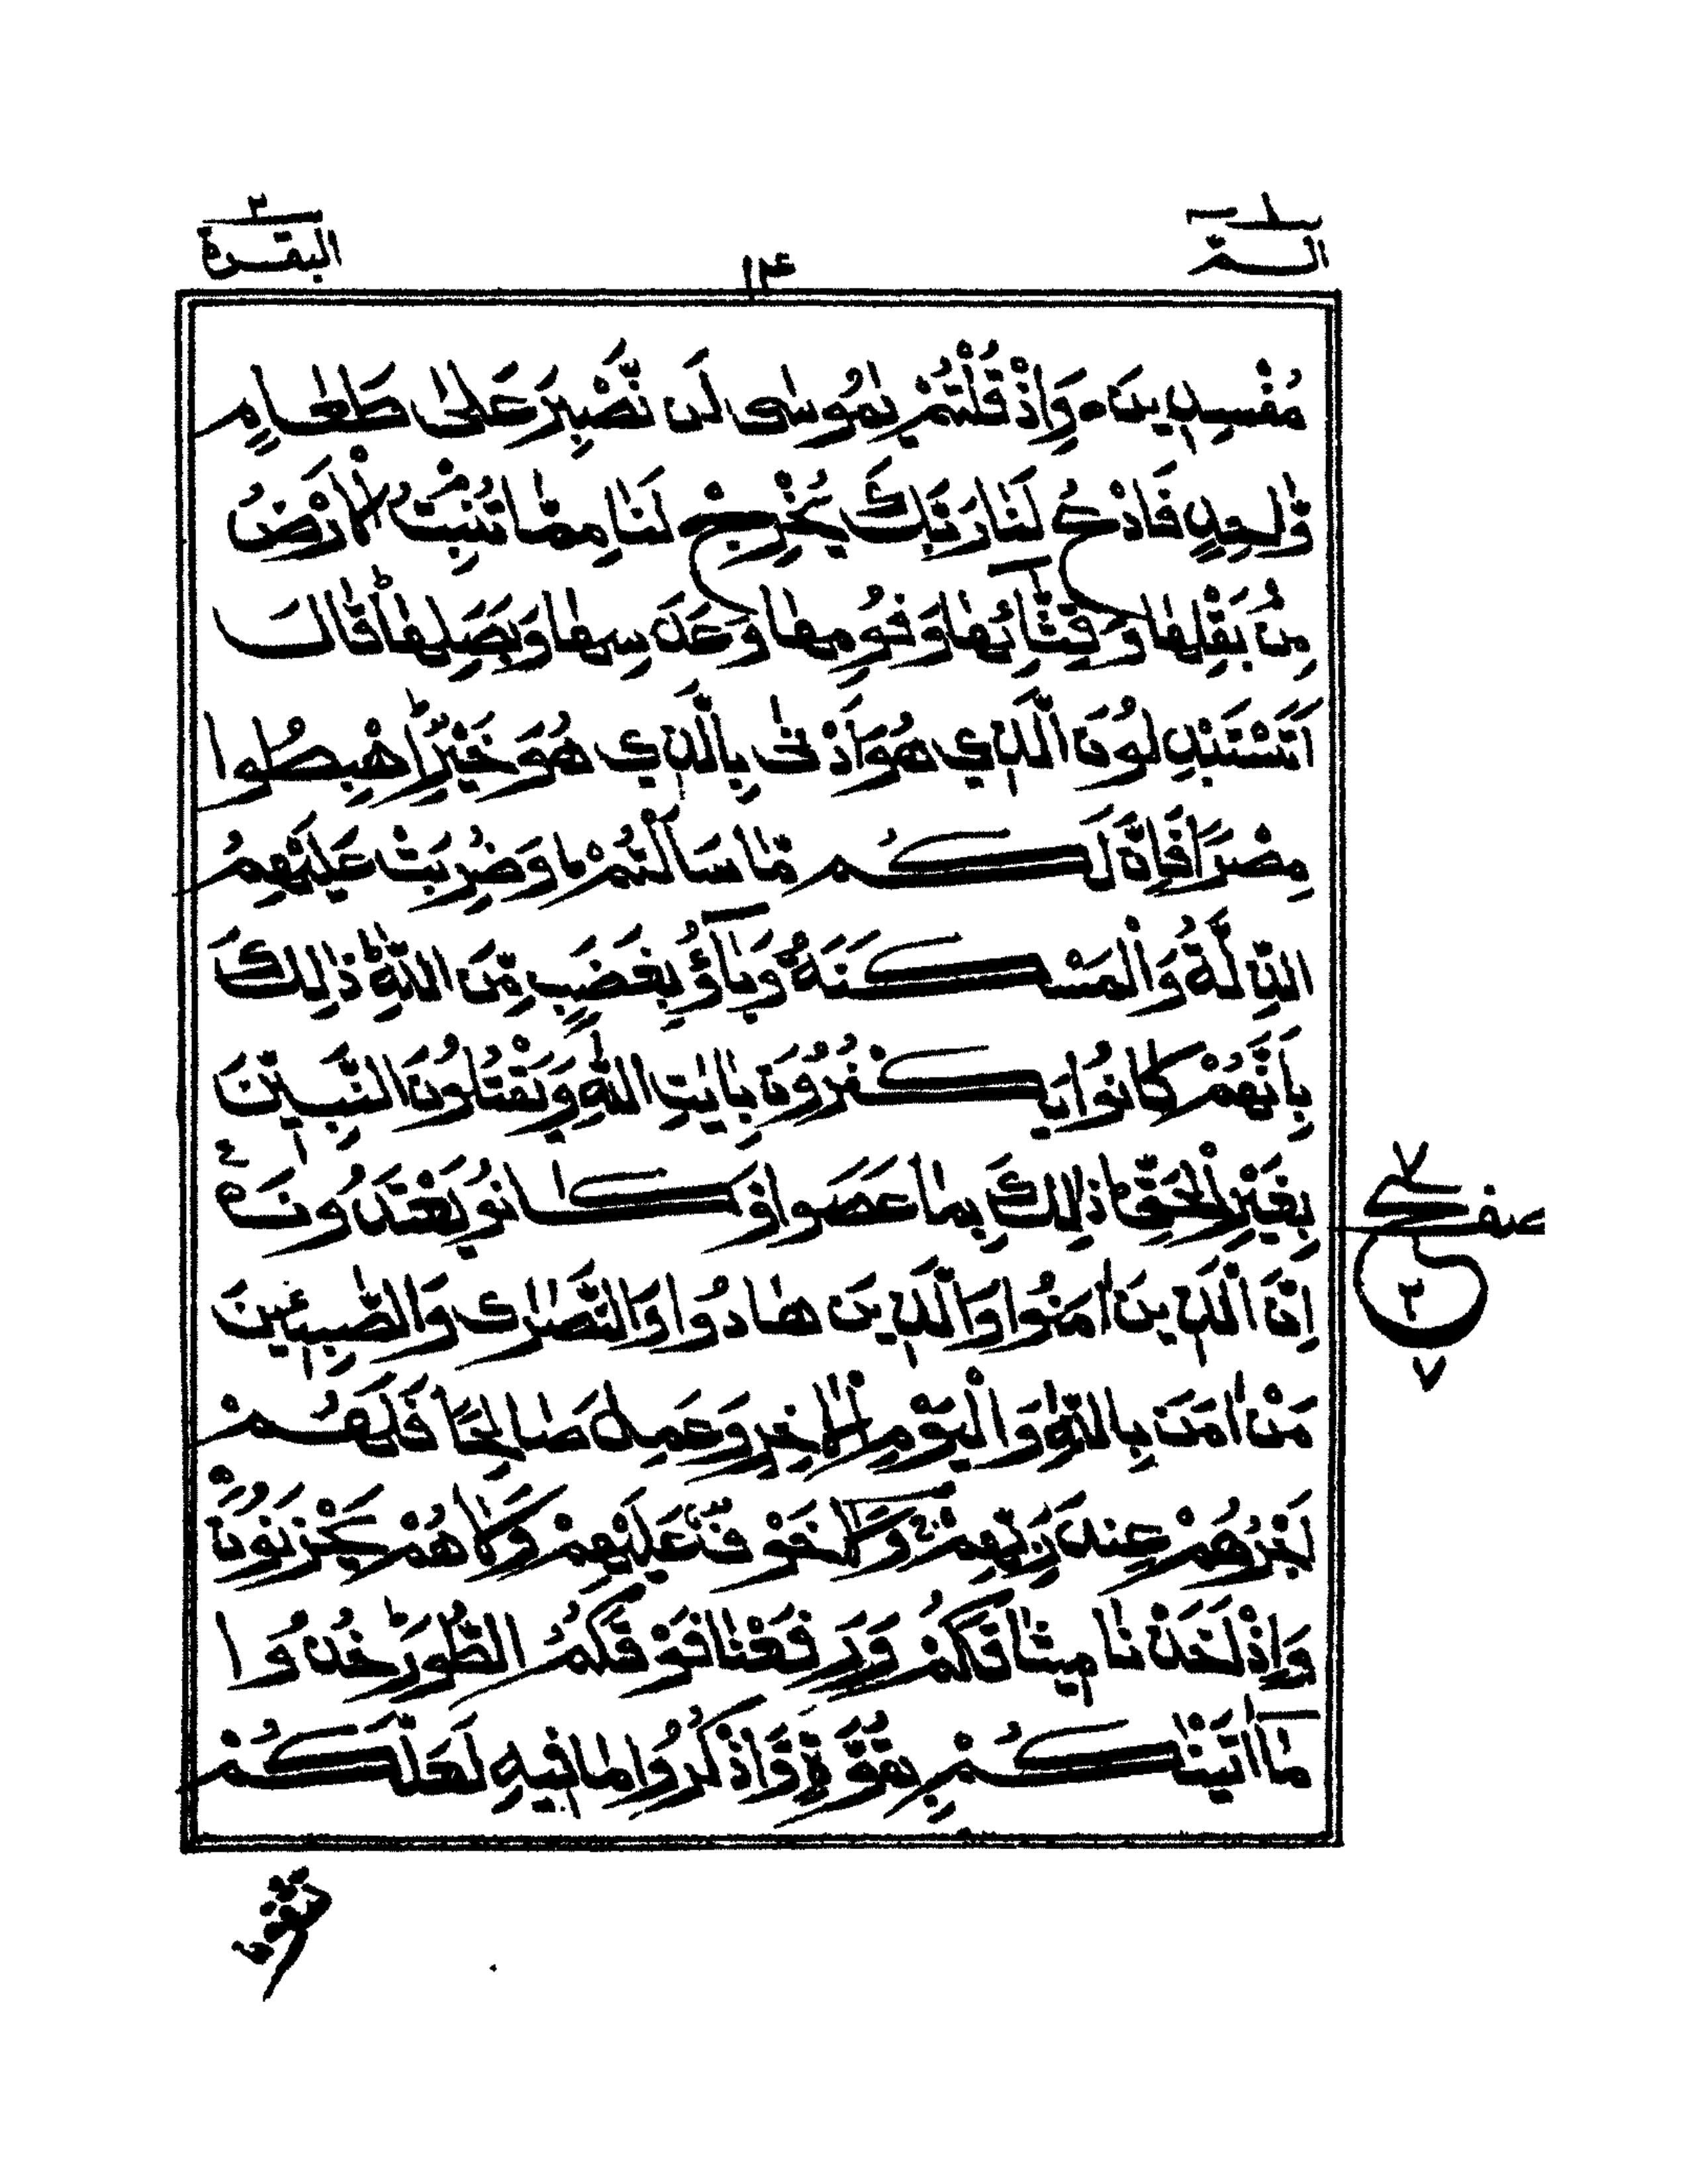 الٓمّٓ ١
١٤
البقرة ٢
مُفْسِدِيْنَ۝ وَاِذْ قُلْتُمْ يٰمُوْسٰى لَنْ نَّصْبِرَ عَلٰى طَعَامٍ
وَّاحِدٍ فَادْعُ لَنَا رَبَّكَ يُخْرِجْ لَنَا مِمَّا تُنْۢبِتُ الْاَرْضُ
مِنْۢ بَقْلِهَا وَقِثَّآئِهَا وَفُوْمِهَا وَعَدَسِهَا وَبَصَلِهَا ؕ قَالَ
اَتَسْتَبْدِلُوْنَ الَّذِيْ هُوَ اَدْنٰى بِالَّذِيْ هُوَ خَيْرٌ ؕ اِهْبِطُوْا
مِصْرًا فَاِنَّ لَكُمْ مَّا سَاَلْتُمْ ؕ وَضُرِبَتْ عَلَيْهِمُ
الذِّلَّةُ وَالْمَسْكَنَةُ وَبَآءُوْ بِغَضَبٍ مِّنَ اللّٰهِ ؕ ذٰلِكَ
بِاَنَّهُمْ كَانُوْا يَكْفُرُوْنَ بِاٰيٰتِ اللّٰهِ وَيَقْتُلُوْنَ النَّبِيّٖنَ
بِغَيْرِ الْحَقِّ ؕ ذٰلِكَ بِمَا عَصَوْا وَّكَانُوْا يَعْتَدُوْنَ۝ ع
اِنَّ الَّذِيْنَ اٰمَنُوْا وَالَّذِيْنَ هَادُوْا وَالنَّصٰرٰى وَالصّٰبِـِٕيْنَ
مَنْ اٰمَنَ بِاللّٰهِ وَالْيَوْمِ الْاٰخِرِ وَعَمِلَ صَالِحًا فَلَهُمْ
اَجْرُهُمْ عِنْدَ رَبِّهِمْ ۚ وَلَا خَوْفٌ عَلَيْهِمْ وَلَا هُمْ يَحْزَنُوْنَ۝
وَاِذْ اَخَذْنَا مِيْثَاقَكُمْ وَرَفَعْنَا فَوْقَكُمُ الطُّوْرَ ؕ خُذُوْا
مَآ اٰتَيْنٰكُمْ بِقُوَّةٍ وَّاذْكُرُوْا مَا فِيْهِ لَعَلَّكُمْ
٧
ع
٣
٧
تَتَّقُوْنَ